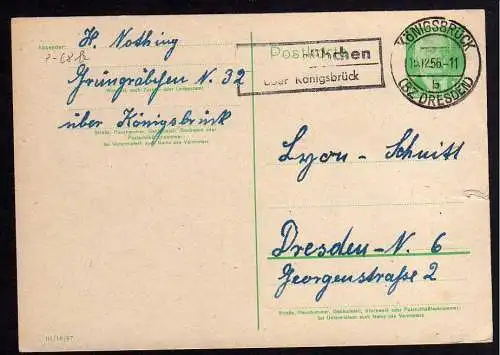 Absender:
P-68b
H. Nothing
Grüngräbchen N. 32
über Königsbrück
Straße, Hausnummer, Gebäudeteil, Stockwerk oder
Postschließfachnummer,
bei Untermietern auch Name des Vermieters
III/18/97
Postkarte
über Königsbrück
KÖNIGSBRÜCK
56.-11
b
(BZ. DRESDEN)
Lyon-Schnitt
Dresden-N. 6
Georgenstraße 2
Straße, Hausnummer, Gebäudeteil, Stockwerk oder Postschließfachnummer;
bei Untermietern auch Name des Vermieters